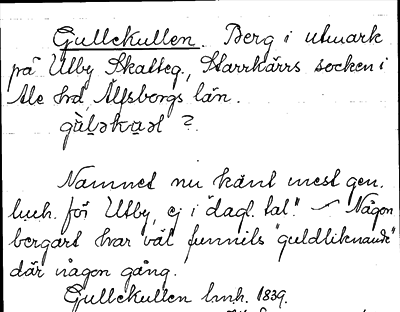 Gullekullen. Berg i utmark
på Utby Skatteg., Starrkärrs socken i
Ale hrd Älfsborgs län.
?
Namnet nu känt mest gen.
för Utby, ej i "dagl. tal." — Någon
bergart har väl funnits "guldliknande"
där någon gång.
Gullekullen lmh. 1839.